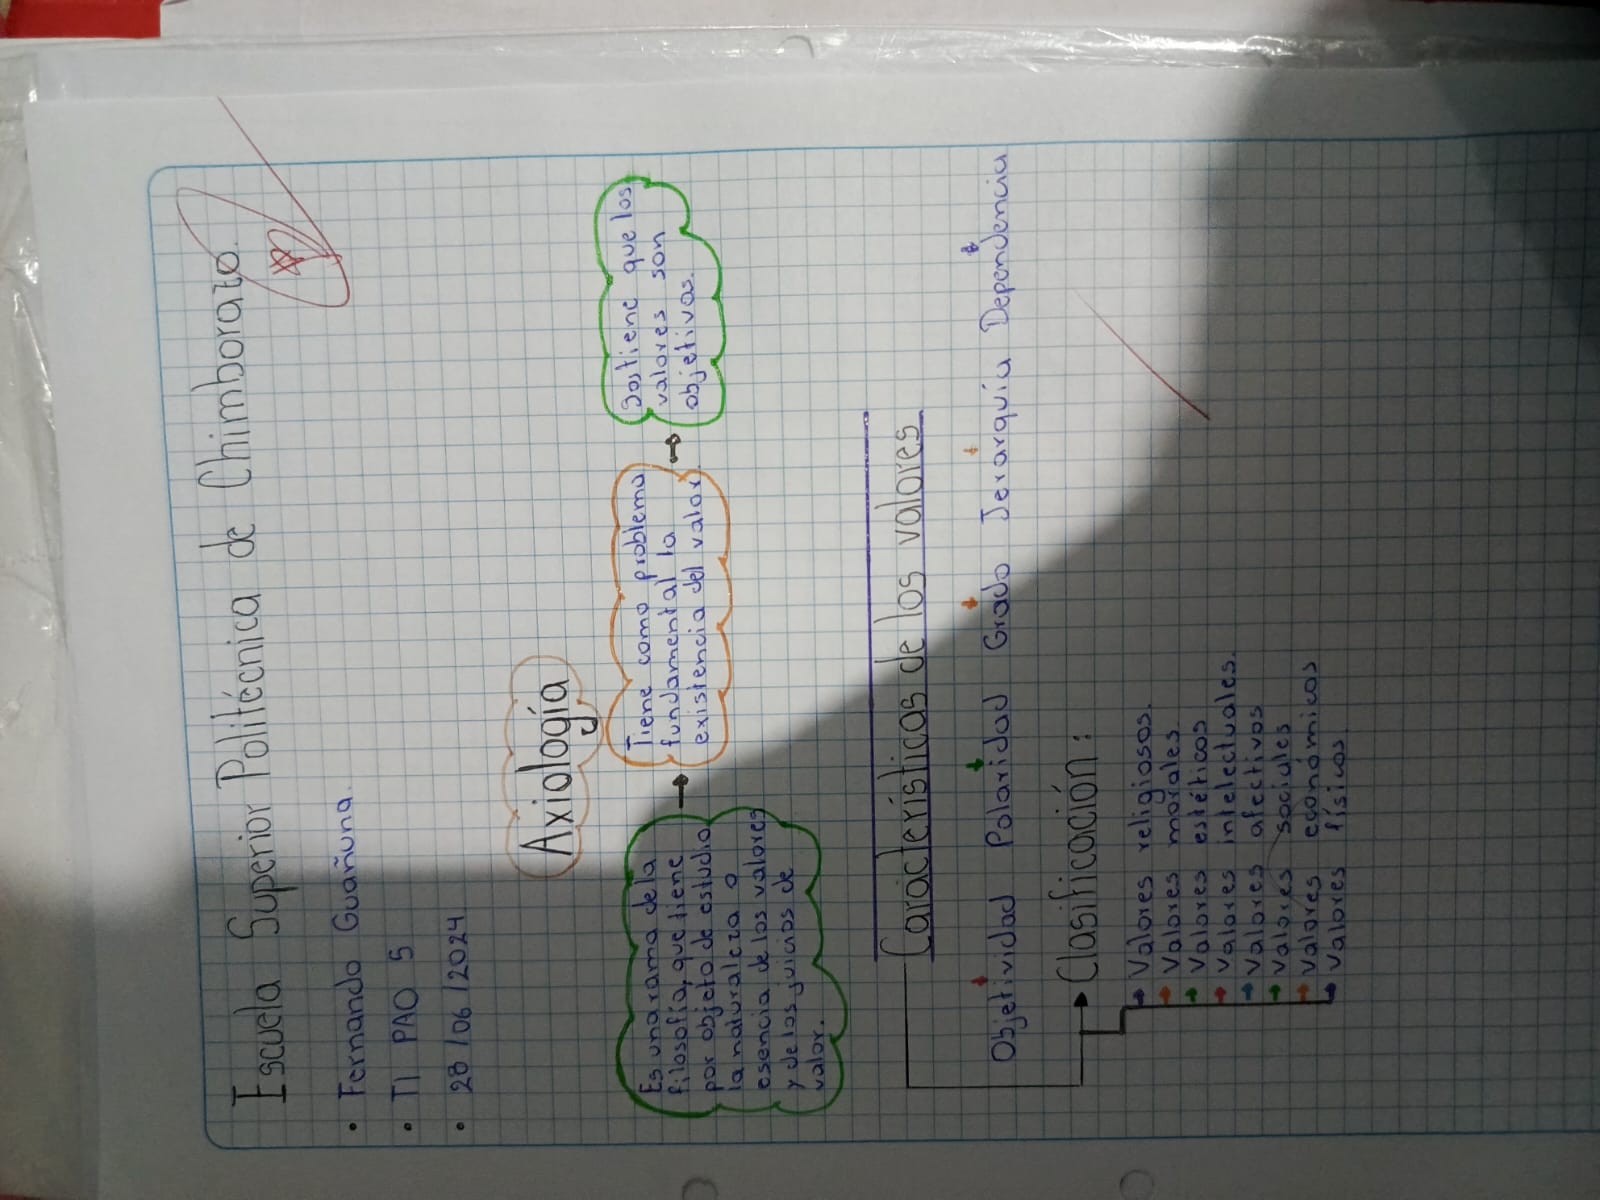 Escuela Superior Politécnica de Chimborazo.
• Fernando Guañuna.
• TI PAO 5
• 28/06/2024
Axiología
Es una rama de la
filosofía, que tiene
por objeto de estudio
la naturaleza o
esencia de los valores
y de los juicios de
valor.
Tiene como problema
fundamental la
existencia del valor.
Sostiene que los
valores son
objetivos.
Características de los valores
Objetividad Polaridad Grado Jerarquía Dependencia
Clasificación:
Valores religiosos.
Valores morales
Valores estéticos
Valores intelectuales.
Valores afectivos
Valores sociales
Valores económicos
Valores físicos